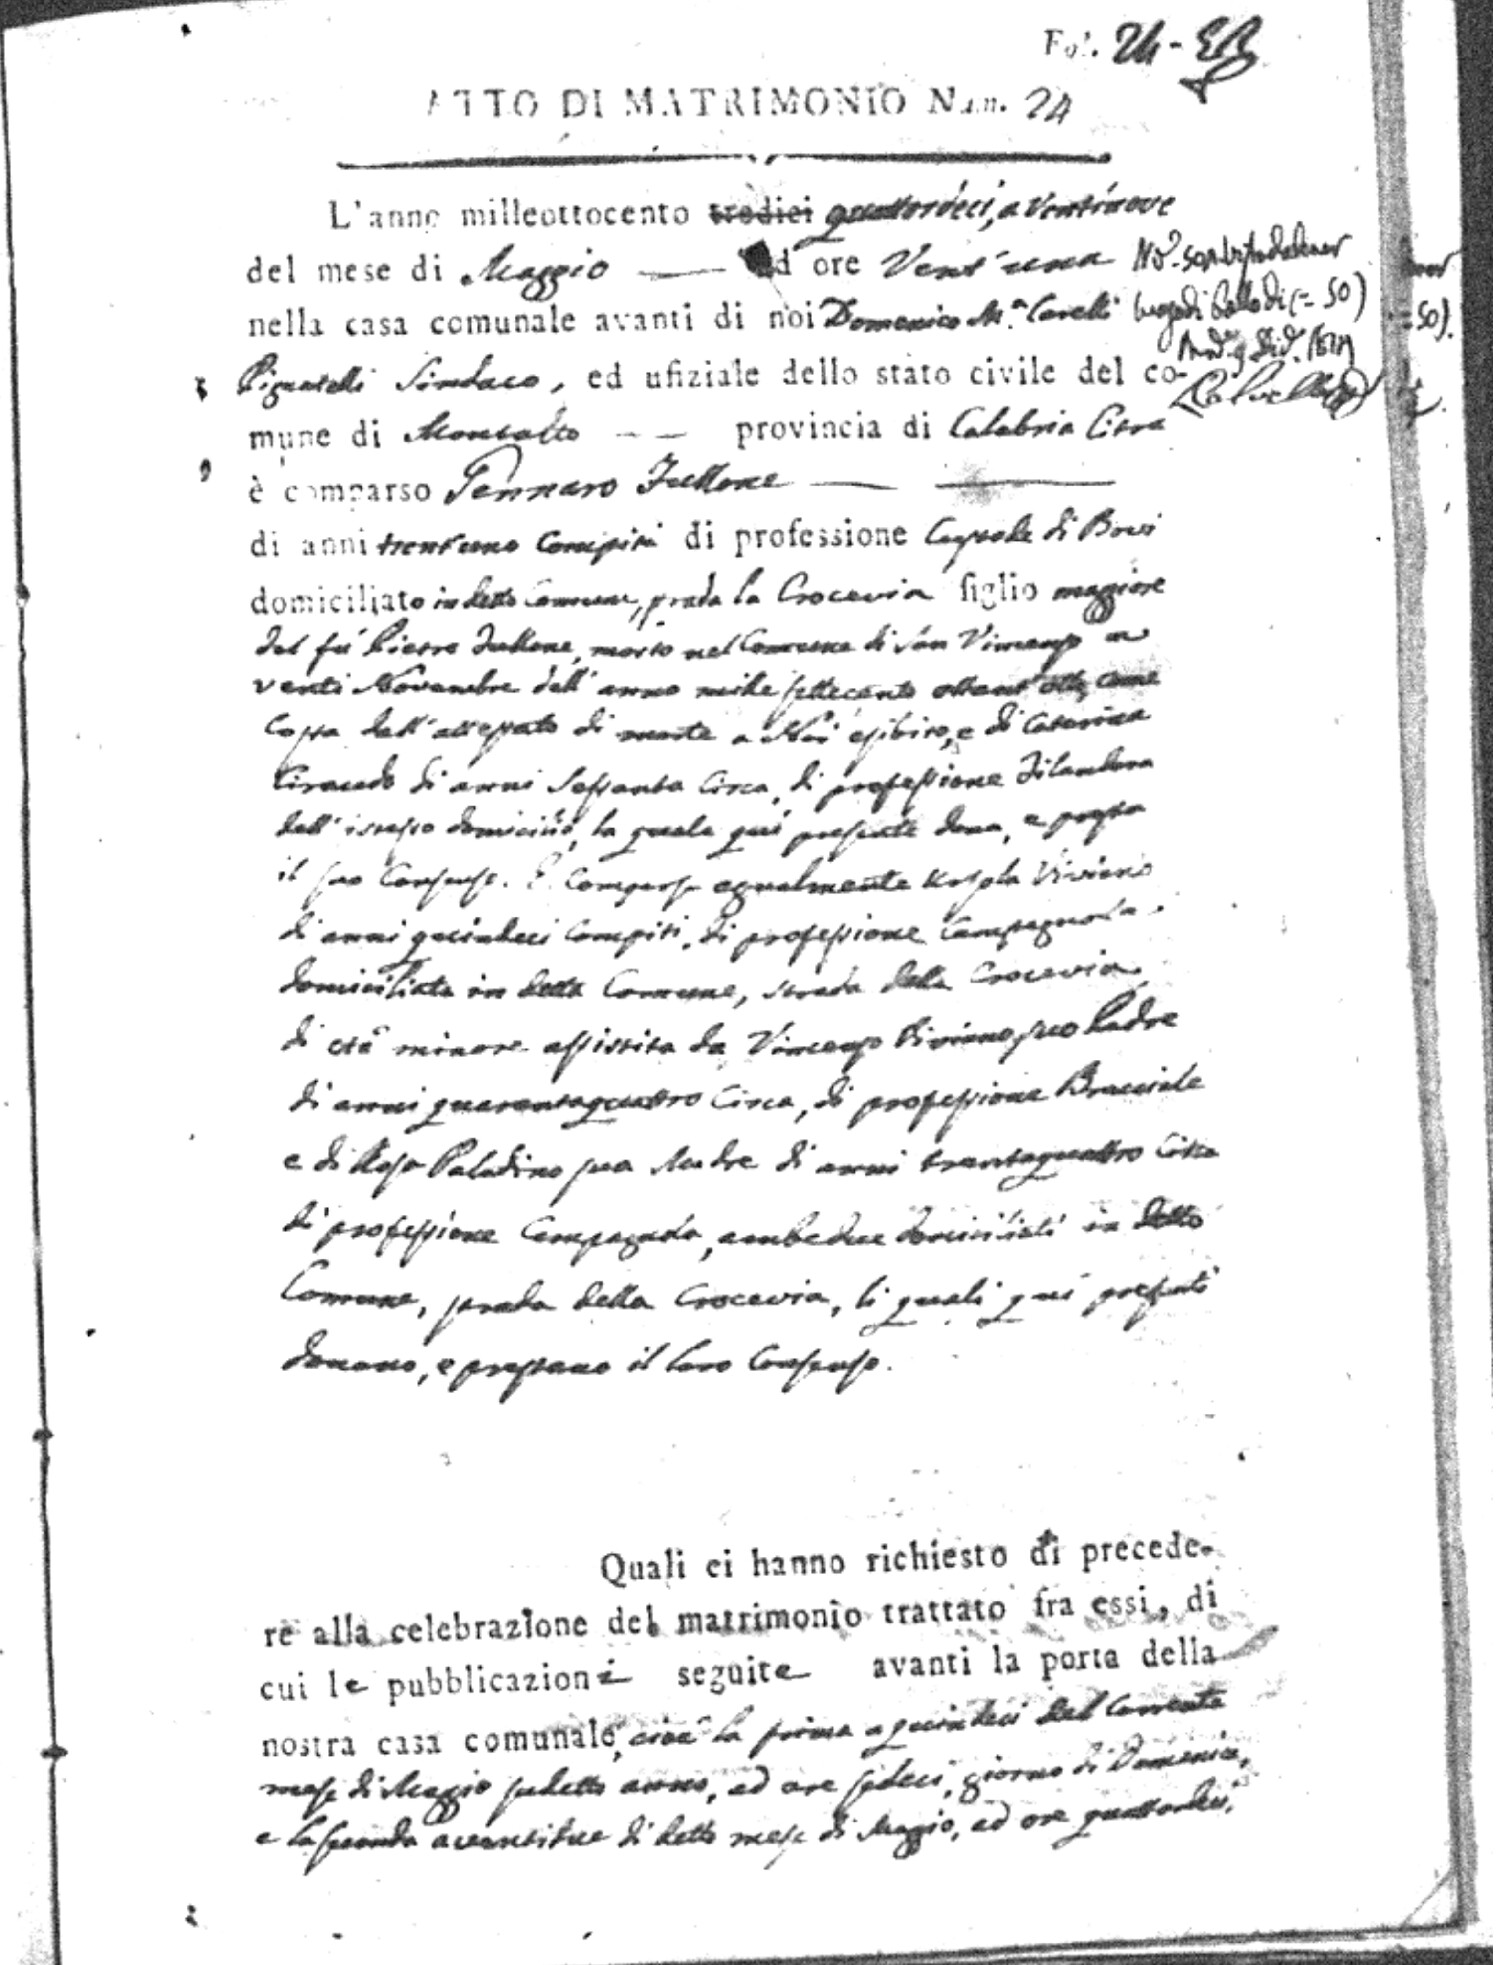 Fol. 24 -
ATTO DI MATRIMONIO Num. 24
L'anno milleottocento tredici quattordeci, a ventinove
del mese di Maggio ad ore Vent'una
nella casa comunale avanti di noi Domenico M.ª Cavelli
Pignatelli Sindaco, ed ufiziale dello stato civile del co-
mune di Montalto provincia di Calabria Citra
è comparso Gennaro Fullone
di anni trentuno Compiti di professione Capitale di Bovi
domiciliato in detto Comune, strada la Crocevia figlio maggiore
del fù Pietro Fullone, morto nel Comune di San Vincenzo a
venti Novembre dell'anno mille settecento ottant'otto, come
Costa dall'attestato di morte a Noi esibito, e di Caterina
di anni Sessanta Circa, di professione Filandera
dell'istesso domicilio, la quale quì presente dona, e presta
il suo Consenso. È Comparsa egualmente Ursola Viviano
di anni quindeci Compiti, di professione Campagnola
domiciliata in detta Comune, strada della Crocevia
di età minore assistita da Vincenzo Viviano suo Padre
di anni quarantaquattro Circa, di professione Bracciale
e di Rosa Paladino sua Madre di anni trentaquattro Circa
di professione Campagnola, ambedue domiciliati in detto
Comune, strada della Crocevia, li quali quì presenti
donano, e prestano il loro Consenso.
Quali ci hanno richiesto di precede-
re alla celebrazione del matrimonio trattato fra essi, di
cui le pubblicazioni seguite avanti la porta della
nostra casa comunale, cioè la prima a quindeci del Corrente
mese di Maggio sudetto anno, ad ore sedeci, giorno di Domenica,
e la seconda a ventidue di detto mese di Maggio, ad ore quattordeci,